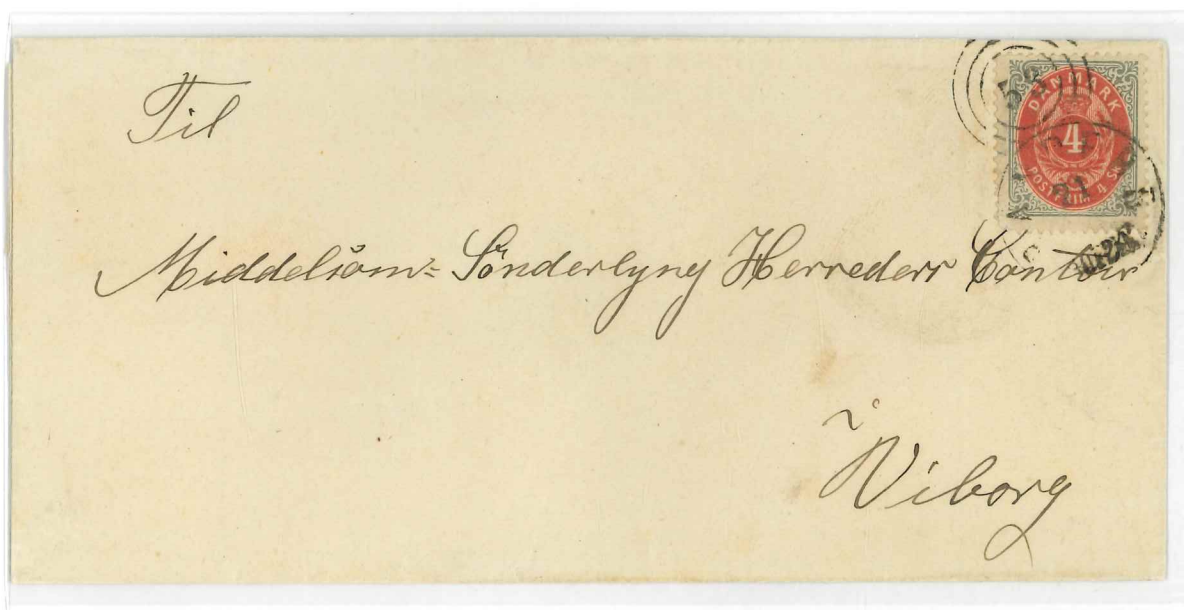 Til
53
DANMARK
4
POSTFRIM 4 SK
21
Middelsom= Sönderlyng Herreders Contoir
i
Viborg